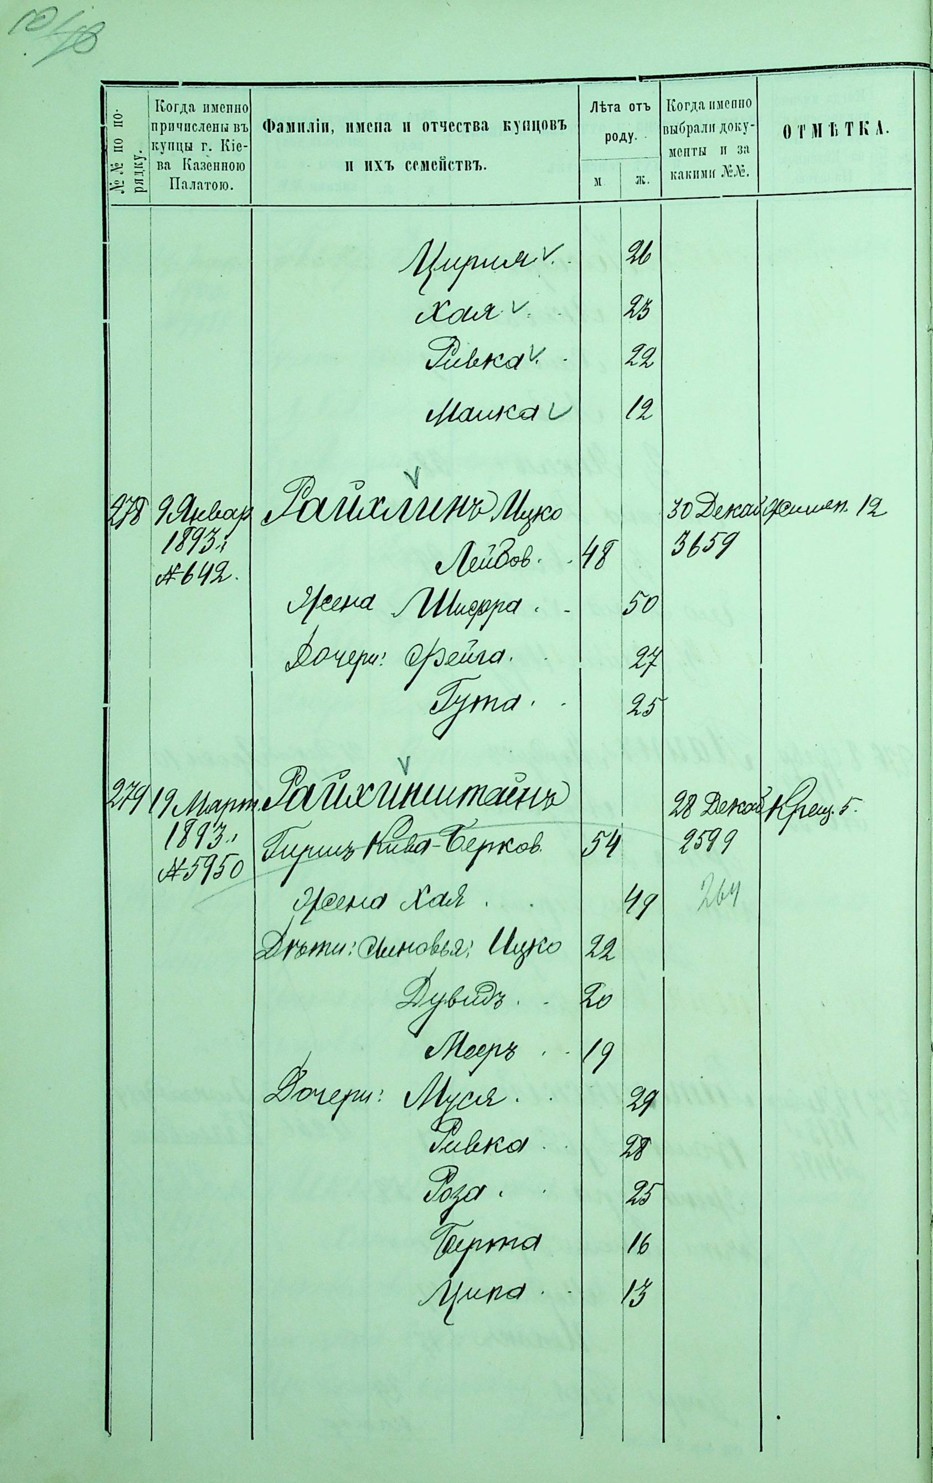 №№ по порядку.
Когда именно причислены въ купцы г. Кіева Казенною Палатою.
Фамиліи, имена и отчества купцовъ и ихъ семействъ.
Лѣта отъ роду.
м
ж.
Когда именно выбрали документы и за какими №№.
ОТМѢТКА.
Хая 23
Ривка 22
Малка 12
278 9 Январ Райхлинъ Ицко 30 Декаб. Жилян. 12
1893 г. Лейбов. 48 3659
№ 642.
Жена Шифра 50
Дочери: Фейга. 27
Гута 25
279 19 Март Райхинштейнъ 28 Декаб Крещ. 5.
1893 г. Гиршъ Кива-Берков. 54 2599
№ 5950
Жена Хая 49 264
Дѣти: сыновья: Ицко 22
Дувидъ 20
Мееръ 19
Дочери: Муся 29
Ривка 28
Роза 25
Берта 16
Ципа 13